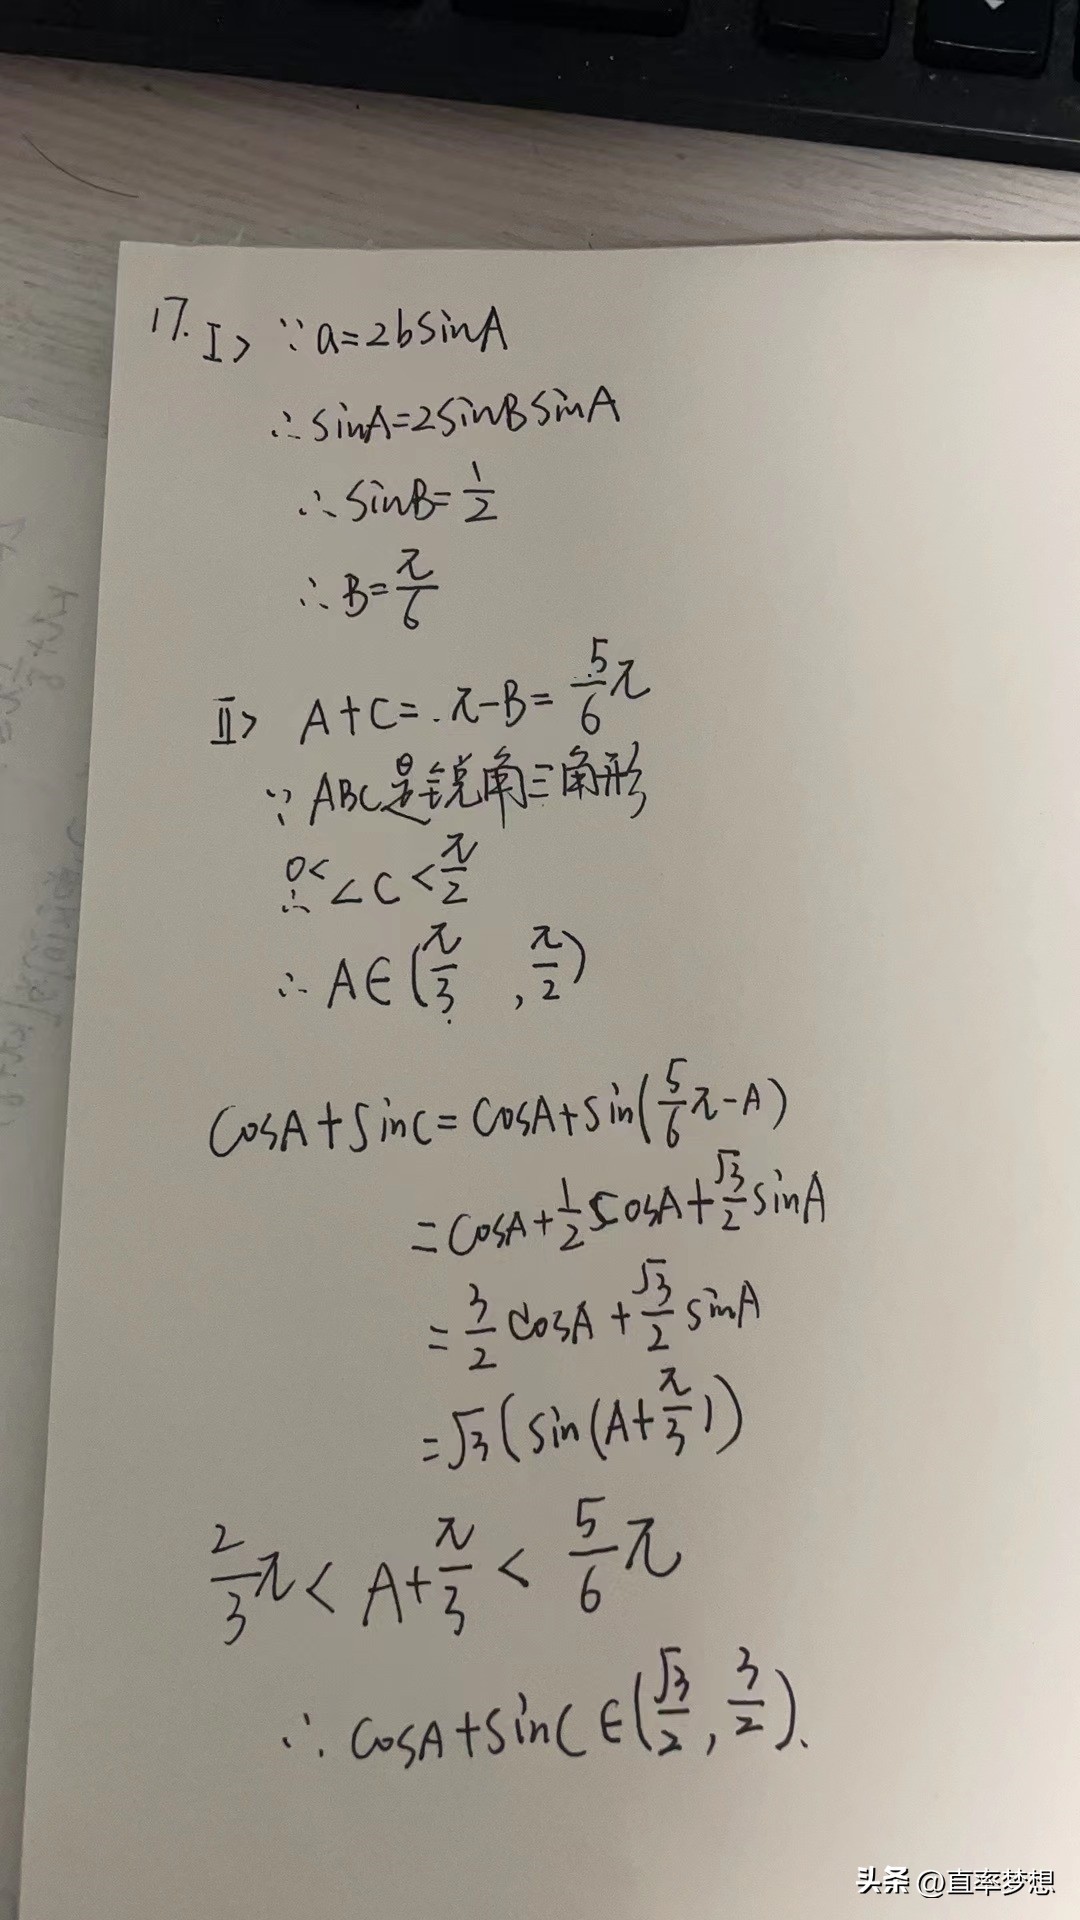 17. Ⅰ> ∵ a=2bsinA
∴ sinA=2sinBsinA
∴ sinB=1/2
∴ B=π/6
Ⅱ> A+C=π-B=5/6π
∵ ABC是锐角三角形
∴ 0<∠C<π/2
∴ A∈(π/3,π/2)
cosA+sinC=cosA+sin(5/6π-A)
=cosA+1/2cosA+√3/2sinA
=3/2cosA+√3/2sinA
=√3(sin(A+π/3))
2/3π<A+π/3<5/6π
∴ cosA+sinC∈(√3/2,3/2).
头条 @直率梦想